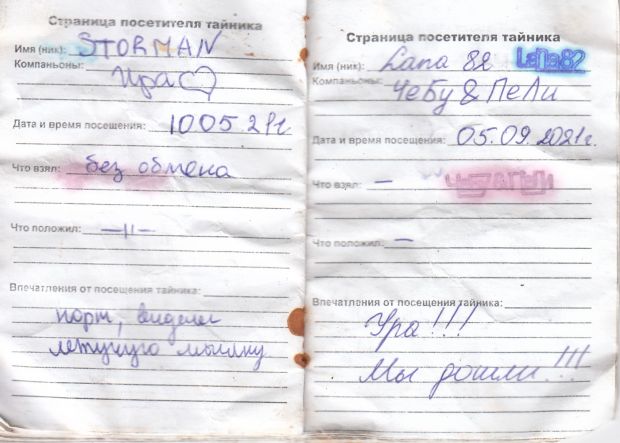 Страница посетителя тайника
Имя (ник): STORMAN
Компаньоны:
Ира
Дата и время посещения: 10.05.21г.
Что взял: без обмена
Что положил: —11—
Впечатления от посещения тайника:
норм, видели
летучую мышку
Страница посетителя тайника
Имя (ник): Lana 82 Lana82
Компаньоны:
Чебу & Пели
Дата и время посещения: 05.09.2021г.
Что взял: —
Что положил: —
Впечатления от посещения тайника:
Ура!!!
Мы дошли!!!